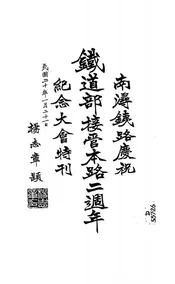 南潯鐵路慶祝
鐵道部接管本路二週年
紀念大會特刊
民國二十年一月二十一
楊志章題